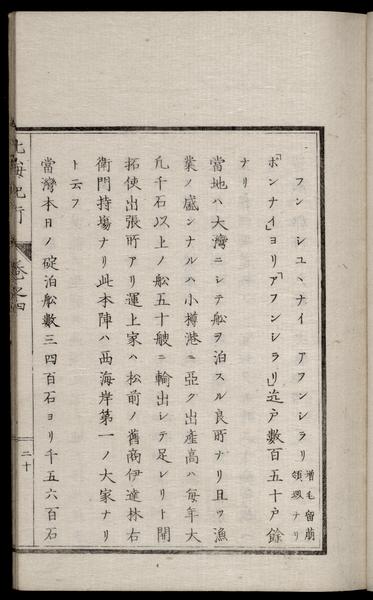 フンシユヽナイ　アフンシラリ　増毛留萠領境ナリ
「ポンナイ」ヨリ「アフンシラリ」迄戸數百五十戸餘
ナリ
當地ハ大灣ニシテ船ヲ泊スル良所ナリ且ツ漁
業ノ盛ンナルハ小樽港ニ亞ク出產高ハ每年大
凡千石以上ノ船五十艘ニ輸出シテ足レリト聞
拓使出張所アリ運上家ハ松前ノ舊商伊達林右
衛門持塲ナリ此本陣ハ西海岸第一ノ大家ナリ
ト云フ
當灣本日ノ碇泊船數三四百石ヨリ千五六百石
北海紀行
卷之四
二十